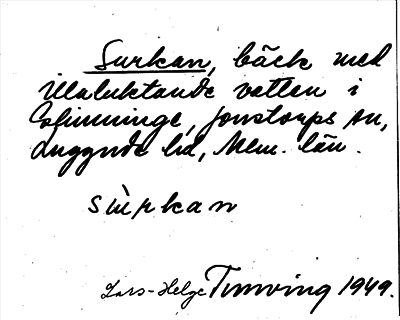 Surkan, bäck med
illaluktande vatten i
Glimminge, Jonstorps sn,
Luggude hd, Mlm. län.
sùrkan
Lars-Helge Tunving 1949.